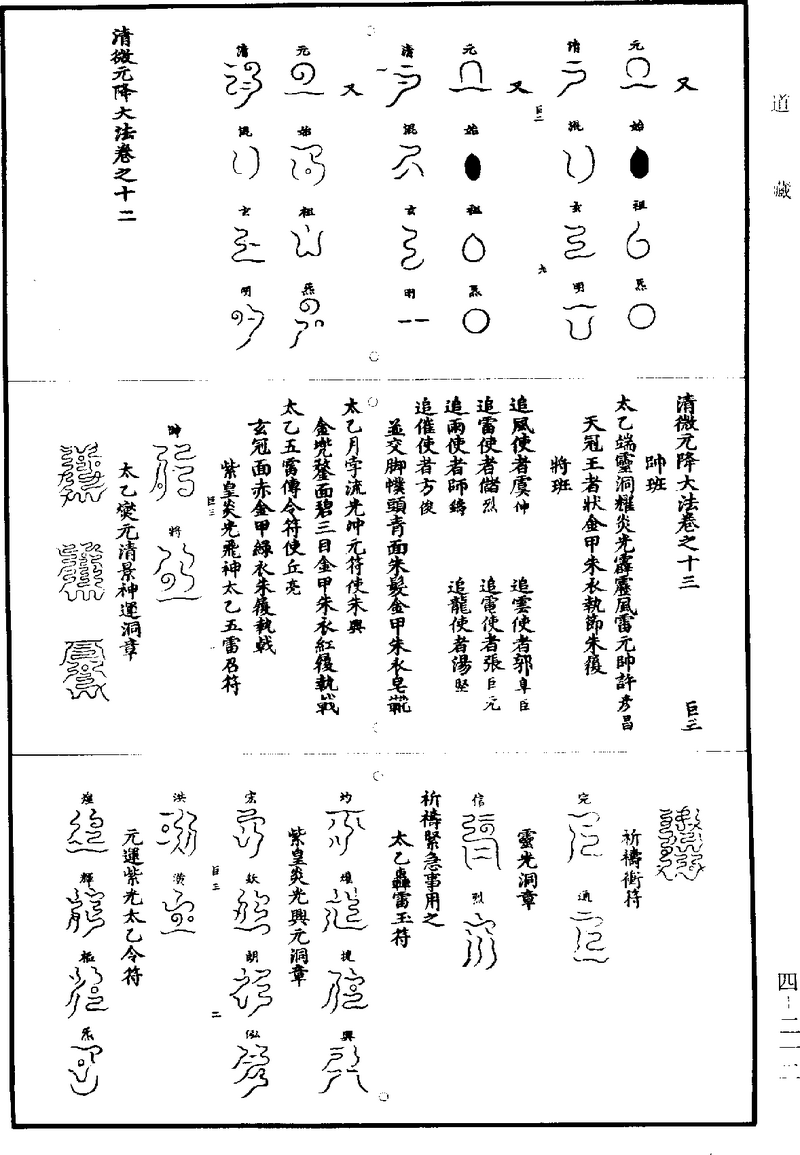 道藏
又
元 始 祖 炁
清 混 玄 明
巨二 九
又
元 始 祖 炁
清 混 玄 明
又
元 始 祖 炁
清 混 玄 明
清微元降大法卷之十二
清微元降大法卷之十三 巨三
帥班
太乙端靈洞耀炎光霹靂風雷元帥許彥昌
天冠王者狀金甲朱衣執節朱履
將班
追風使者虞仲 追雲使者郭阜臣
追雷使者儲烈 追電使者張巨元
追雨使者師鑄 追龍使者湯堅
追催使者方俊
並交脚幞頭青面朱髮金甲朱衣皂靴
太乙月孛流光沖元符使朱興
金兜鍪面碧三目金甲朱衣紅履執戟
太乙五雷傳令符使丘亮
玄冠面赤金甲綠衣朱履執戟
紫皇炎光飛神太乙五雷召符
巨三
帥 將
太乙變元清景神運洞章
祈禱衝符
完 通
靈光洞章
信 烈
祈禱緊急事用之
太乙轟雷玉符
灼 捷 興
紫皇炎光興元洞章
宏 欻 朗
巨三 二
洪 潢
元運紫光太乙令符
煌 輝 樞 炁
四-二一二